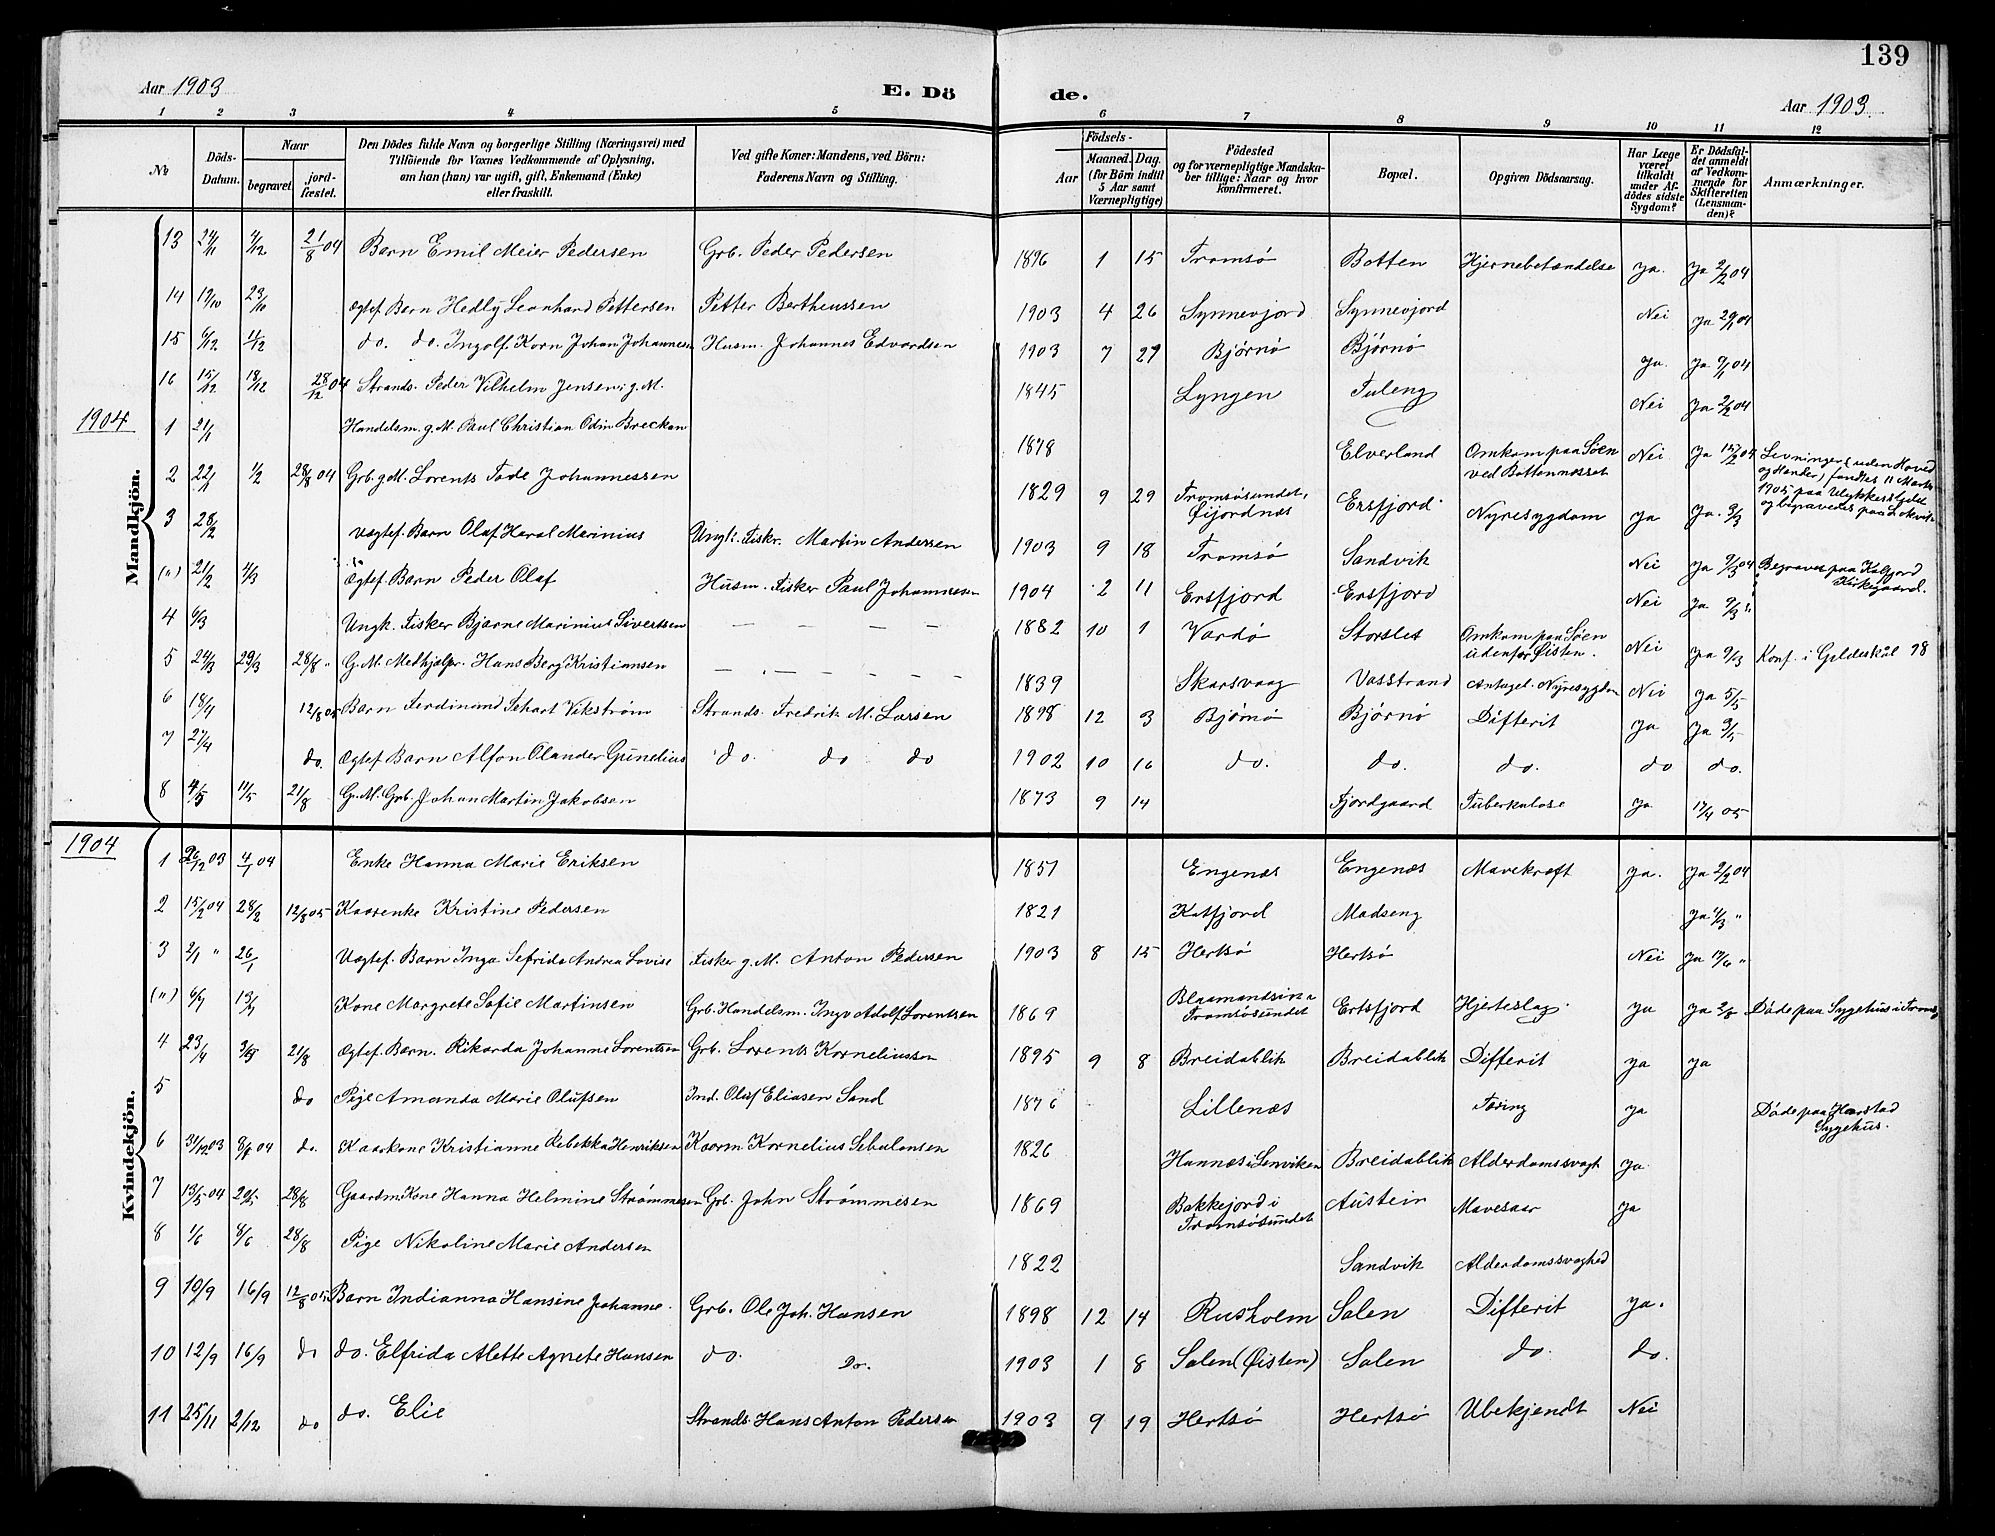 139
Aar 1903 E. Dö de. Aar 1903
1 2 3 4 5 6 7 8 9 10 11 12
№ Döds-Datum. Naar begravet. jord-fæstet. Den Dödes fulde Navn og borgerlige Stilling (Næringsvei) med Tilföiende for Voxnes Vedkommende af Oplysning, om han (hun) var ugift, gift, Enkemand (Enke) eller fraskilt. Ved gifte Koner: Mandens, ved Börn: Faderens Navn og Stilling. Födsels- Aar Maaned. Dag. (for Börn indtil 5 Aar samt Værnepligtige) Födested og for værnepligtige Mandskaber tillige: Naar og hvor konfirmeret. Bopæl. Opgiven Dödsaarsag. Har Læge været tilkaldt under Afdödes sidste Sygdom? Er Dödsfaldet anmeldt af Vedkommende for Skifteretten (Lensmanden)? Anmærkninger.
Mandkjön.
13 24/11 4/12 21/8 04 Barn Emil Meier Pedersen Grb. Peder Pedersen 1896 1 15 Tromsø Botten Hjernebetændelse ja. ja 2/2 04
14 19/10 23/10 Ægtef Barn Hedly Leonhard Pettersen Petter Bertheussen 1903 4 26 Synnevjord Synnevjord Nei ja 29/1 04
15 6/12 11/12 do. do. Ingolf Korn Johan Johannesen Husm. Johannes Edvardsen 1903 7 27 Bjørnø Bjørnø ja. ja 9/1 04
16 15/12 18/12 28/12 04 Strands. Peder Vilhelm Jensen g. M. 1845 Lyngen Tuleng Nei ja 2/2 04
1904
1 21/1 Handelsm. g. M. Paul Christian Odin Breckan 1878 Elverland Omkom paa Søen ved Bottennesset Nei ja 15/2 04 Levninger (uden Hoved og Hænder) fandtes 11 Marts 1905 paa Ulykkesstedet og begravedes paa
2 22/1 1/2 28/8 04 Grb. g. M. Lorents Tode Johannessen 1829 9 29 Tromsøsundet, Øijordnæs Ersfjord Nyresygdom ja ja. 3/3
3 28/2 Uægtef. Barn Olaf Haral Marinius Ungk. Fiskr. Martin Andersen 1903 9 18 Tromsø Sandvik Nei ja 9/3 04 Begraves paa Kalfjord Kirkegaard.
(") 21/2 4/3 Ægtef Barn Peder Olaf Husm. Fisker Paul Johannesen 1904 2 11 Ersfjord Ersfjord Nei ja 9/3 "
4 6/3 Ungk. Fisker Bjarne Marinius Sivertsen — — — — 1882 10 1 Vardø Storslet Omkom paa Søen udenfor Øisten. Nei ja 9/3 Konf. i Gildeskål 98
5 24/3 29/3 28/8 " G. M. Medhjelpr. Hans Berg Kristiansen — — — — 1839 Skarsvaag Vasstrand Antagel. Nyresygdom Nei ja 5/5
6 18/4 12/8 05 Barn Ferdinand Tehart Vikstrøm Strands. Fredrik M. Larsen 1898 12 3 Bjørnø Bjørnø Difterit ja ja 3/5
7 27/4 do. Ægtef Barn Alfon Olander Gunelius do do do 1902 10 16 do. do. do. do do.
8 4/5 11/5 21/8 G. M. Grb. Johan Martin Jakobsen 1873 9 14 Fjordgaard Tuberkulose ja 17/4 05
1904
Kvindekjön.
1 26/12 03 4/1 04 Enke Hanna Marie Eriksen 1851 Engenæs Engenæs Mavekræft ja. ja 2/2 04
2 15/2 04 28/2 12/8 05 Kaarenke Kristine Pedersen 1821 Katfjord Madseng ja 4/3 "
3 2/1 " 26/1 Uægtef. Barn Inga Sefrida Andrea Lovise Fisker g. M. Anton Pedersen 1903 8 15 Hertsø Hertsø Nei ja 17/6 "
(") 6/7 13/7 Kone Margrete Sofie Martinsen Grb. Handelsm. Ingv Adolf Lorentsen 1869 Tromsøsundet Ertsfjord Hjerteslag. ja ja 2/8 Døde paa Sygehus i Tromsø
4 23/4 3/5 21/8 Ægtef. Barn. Rikarda Johanne Lorentsen Grb. Lorents Korneliussen 1895 9 8 Breidablik Breidablik Difterit ja ja
5 do Pige Amanda Marie Olufsen Ind. Oluf Eliasen Sand 1876 Lillenæs Tæring ja Døde paa Harstad Sygehus.
6 31/12 03 8/1 04 do. Kaarkone Kristianne Rebekka Henriksen Kaarm. Kornelius Sebulonsen 1826 Hannæs i Lenviken Breidablik Alderdomssvagh ja.
7 13/5 04 20/5 28/8 Gaardm. Kone Hanna Helmine Strømmesen Grb. John Strømmesen 1869 Bakkejord i Tromsøsundet Austein Mavesaar ja
8 1/6 8/6 28/8 Pige Nikoline Marie Andersen 1822 Sandvik Alderdomssvaghed
9 10/9 16/9 12/8 05 Barn Indianna Hansine Johanne. Grb. Ole Joh. Hansen 1898 12 14 Rusholm Solen Difterit ja.
10 12/9 16/9 do do. Elfrida Alette Agnete Hansen do. Do. 1903 1 8 Solen (Øisten) Solen do. do.
11 25/11 2/12 do do. Elie Strands. Hans Anton Pedersen 1903 9 19 Hertsø Hertsø Ubekjendt Nei